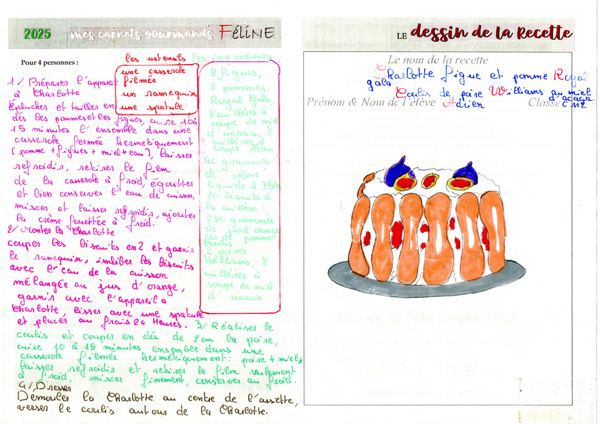 2025 mes carnets gourmands FéLiNE
Pour 4 personnes :
les ustensils
une casserole
filmée
un ramequin
une spatule
les ingrédients
8 figues,
2 pommes
Royal Gala,
8 cuillères à
soupe de miel
d'acacia, 8
cuillères à
soupe d'eau
20 biscuits à
la cuillère
2 poires
Williams, 8
cuillères à
soupe de miel
d'acacia
1/ Préparer l'appareil
à Charlotte
Éplucher et tailler en
dés les pommes et les figues, cuire 10 à
15 minutes l'ensemble dans une
casserole fermée hermétiquement
(pomme + figues + miel + eau), laisser
refroidir, retirer le film
de la casserole à froid, égoutter
et bien conserver l'eau de cuisson,
mixer et laisser refroidir, ajouter
la crème fouettée à froid.
2/ Monter la Charlotte
couper les biscuits en 2 et garnir
le ramequin, imbiber les biscuits
avec l'eau de la cuisson
mélangée au jus d'orange,
garnir avec l'appareil à
Charlotte, lisser avec une spatule
et placer au frais 24 heures. 3/ Réaliser le
coulis et couper en dés de 2 cm la poire,
cuire 10 à 15 minutes ensemble dans une
casserole filmée hermétiquement : poire + miel,
laisser refroidir et retirer le film seulement
à froid, mixer finement, conserver au froid.
4/ Dresser
Démouler la Charlotte au centre de l'assiette,
verser le coulis autour de la Charlotte.
LE dessin de la Recette
Le nom de la recette
Charlotte figue et pomme Royal
gala Coulis de poire Williams au miel
d'acacia
Prénom & Nom de l'élève Adrien Classe CM2